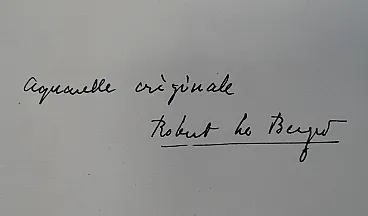 aquarelle originale
Robert Le Bergö